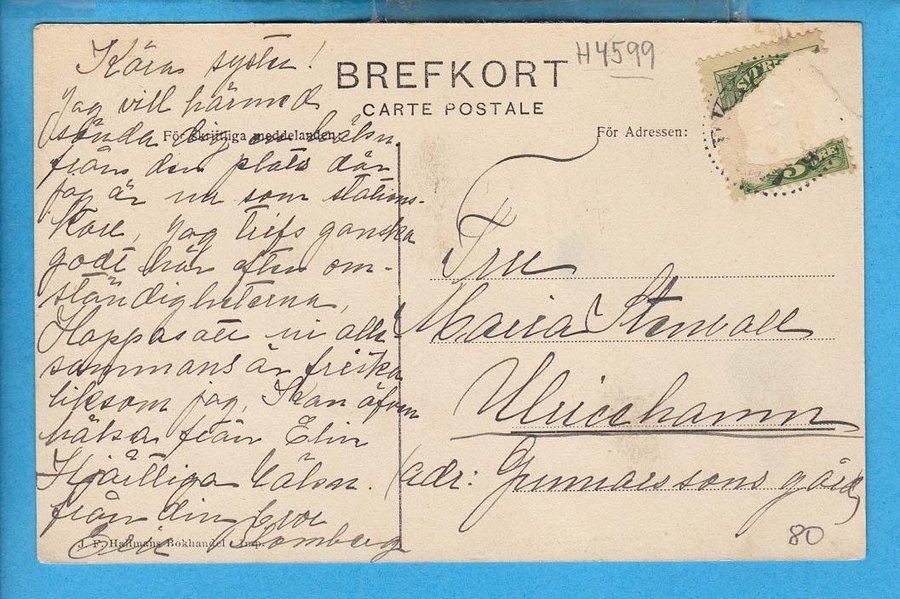 Kära syster!
Jag vill härmed
sända dig en hälsn.
från den plats där
jag är nu som stations-
kare, jag trifs ganska
godt här efter om-
ständigheterna,
Hoppas att ni alle-
sammans är friska
liksom jag, Kan äfven
hälsa från Elin
Hjärtliga hälsn.
från din bror
Blomberg
BREFKORT
CARTE POSTALE
För skriftliga meddelanden:
För Adressen:
H4599
Fru
Maria Stenvall
Ulricehamn
(adr: Gunnarssons gård)
J. F. Hallmans Bokhandel Imp.
80
5 ÖRE